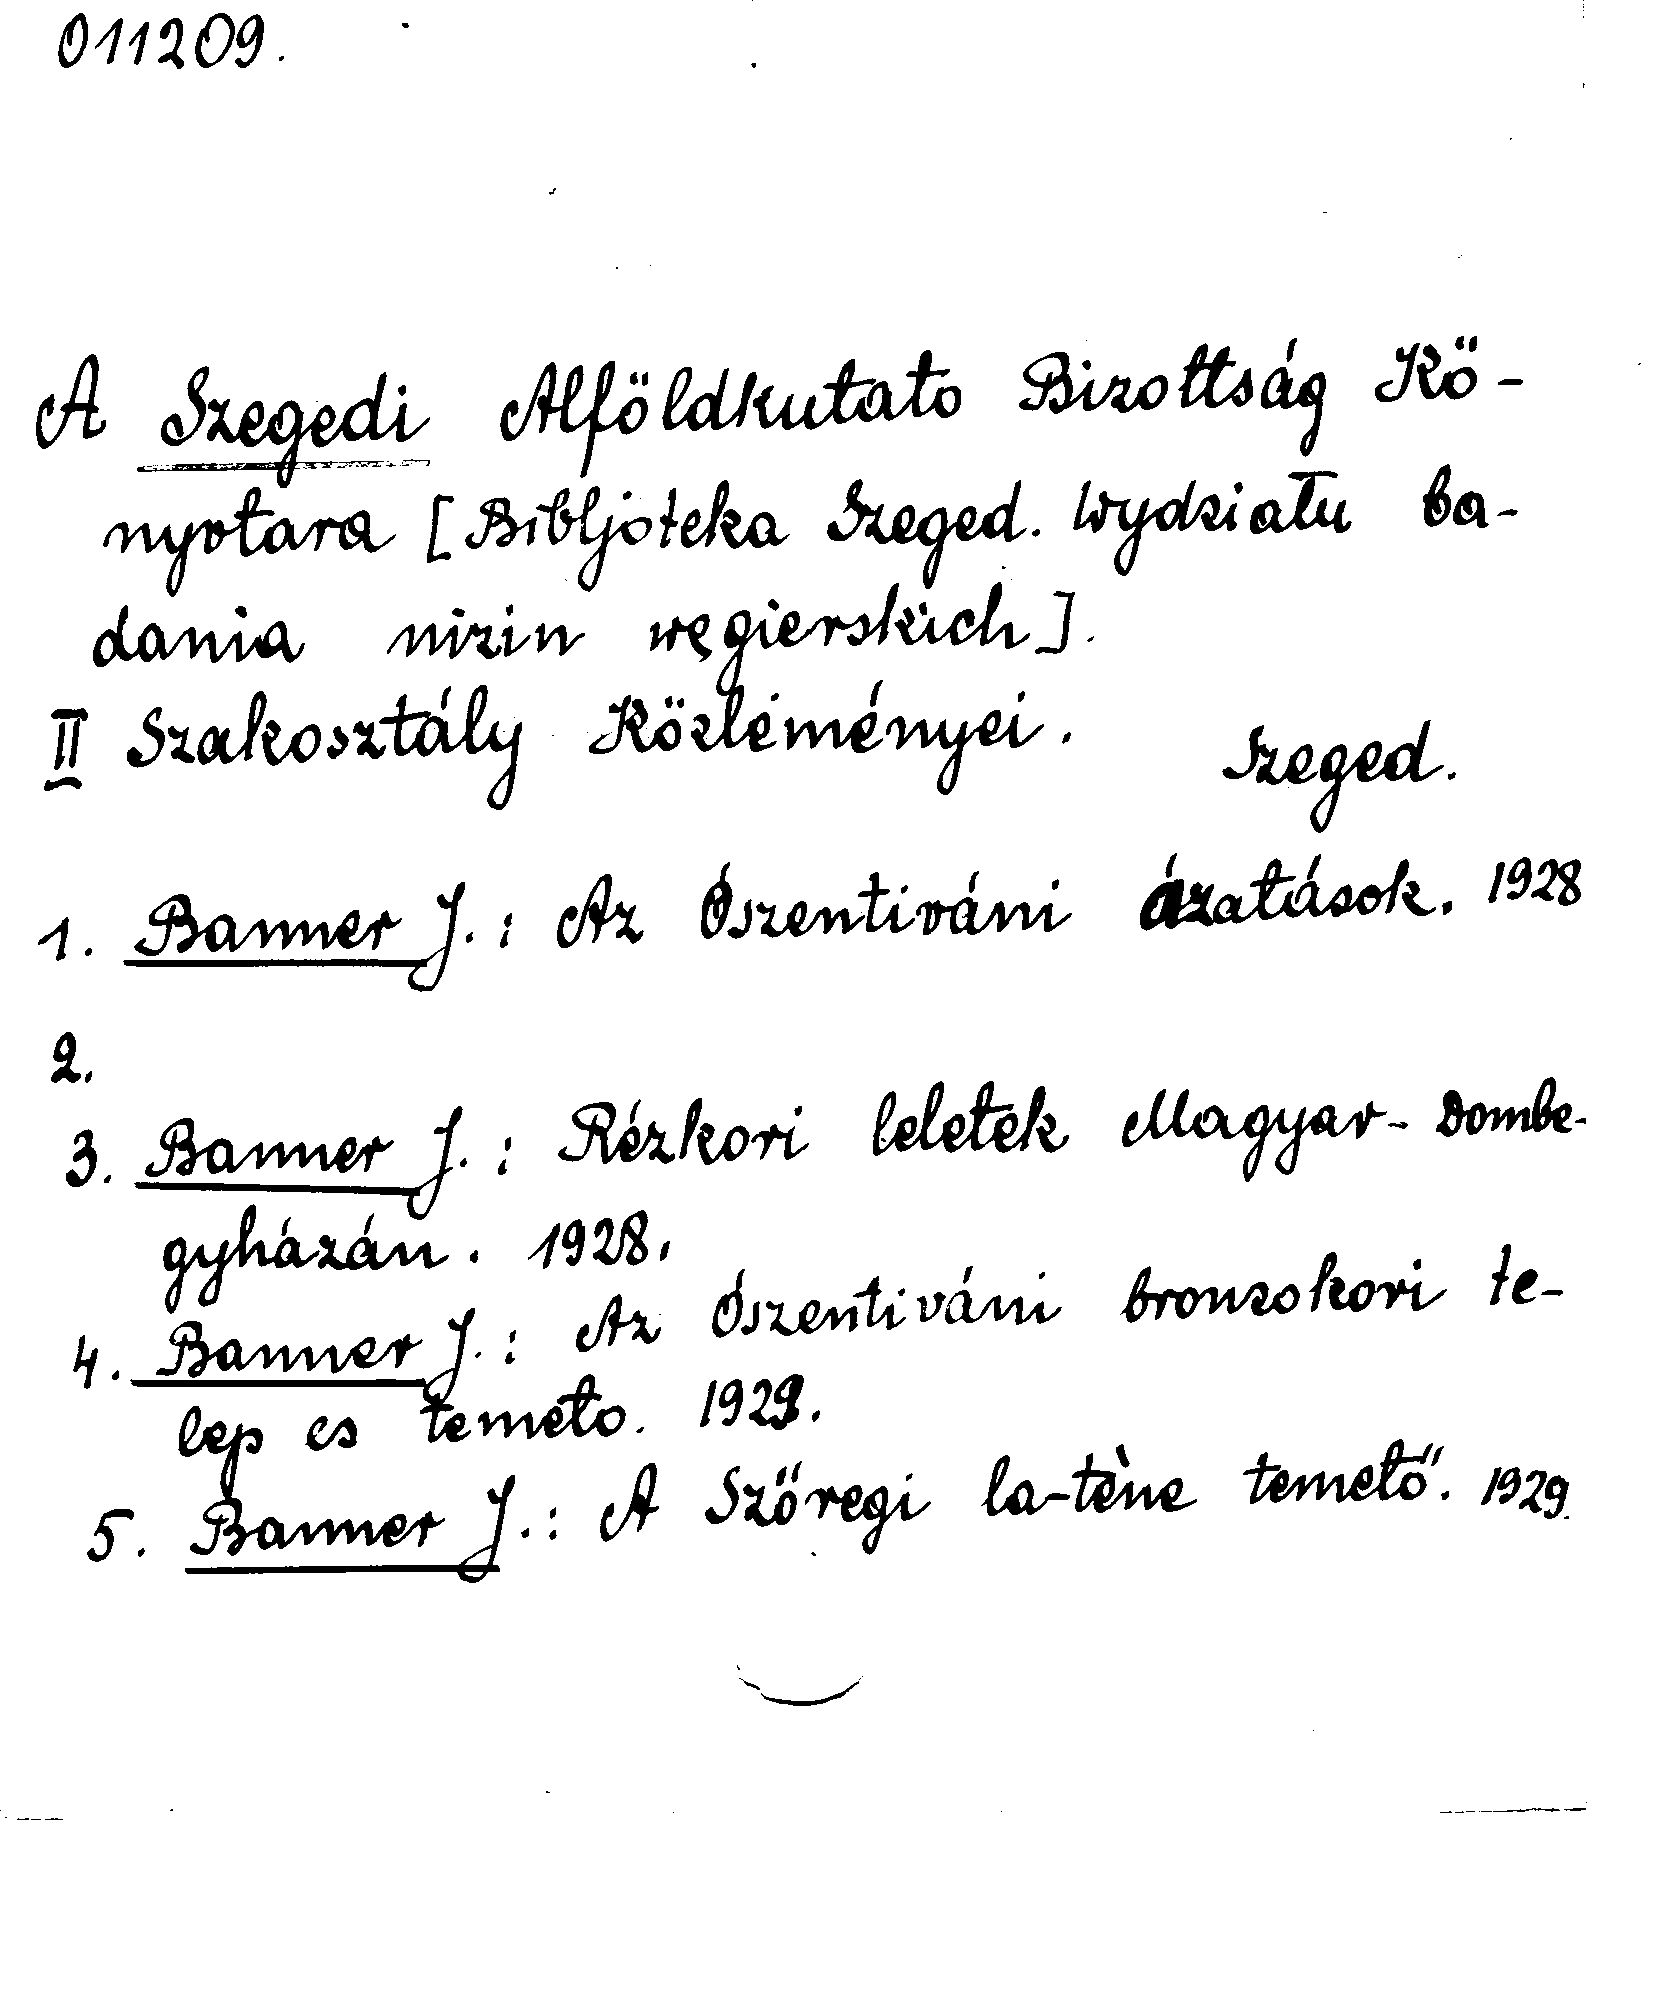 011209.
A Szegedi Alföldkutato Bizottság Kö-
nyvtara [Bibljoteka Szeged. Wydziału ba-
dania nizin węgierskich].
II Szakosztály Közleményei.
Szeged.
1. Banner J.: Az Ószentiváni ázatások. 1928
2.
3. Banner J.: Rézkori leletek Magyar-Dombe-
gyházán. 1928.
4. Banner J.: Az Ószentiváni bronzokori te-
lep es temeto. 1929.
5. Banner J.: A Szőregi la-tène temető. 1929.